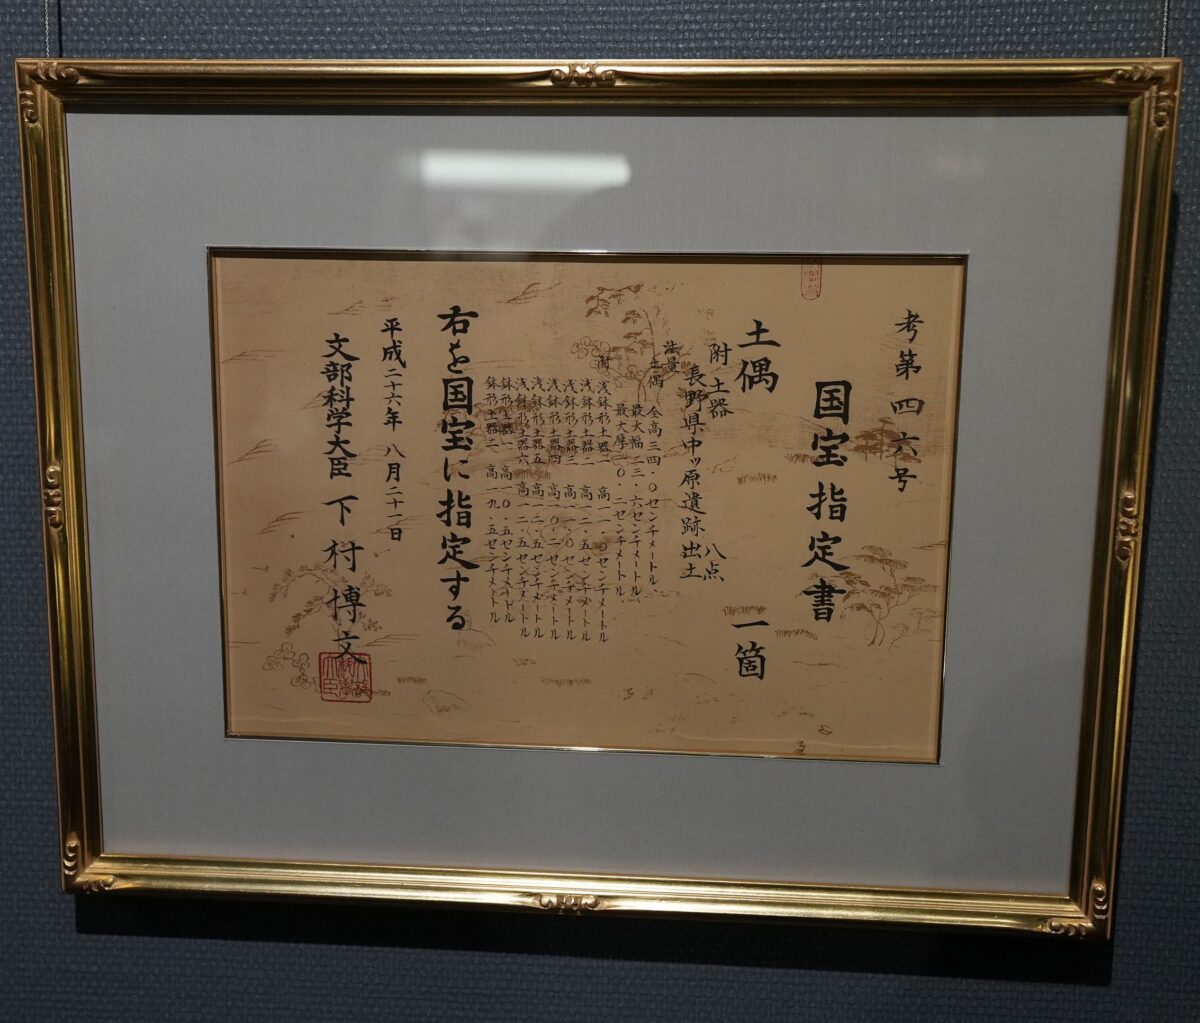 考第四六号
国宝指定書
土偶 一箇
附 土器 八点
長野県中ッ原遺跡出土
法量
土偶 全高三四・〇センチメートル、
最大幅一三・六センチメートル、
最大厚一〇・二センチメートル、
附 浅鉢形土器一 高一一・〇センチメートル
浅鉢形土器二 高一二・五センチメートル
浅鉢形土器三 高一一・〇センチメートル
浅鉢形土器四 高一〇・二センチメートル
浅鉢形土器五 高一二・五センチメートル
浅鉢形土器六 高一二・五センチメートル
鉢形土器一 高一〇・五センチメートル
鉢形土器二 高一九・五センチメートル
右を国宝に指定する
平成二十六年 八月二十一日
文部科学大臣 下村博文